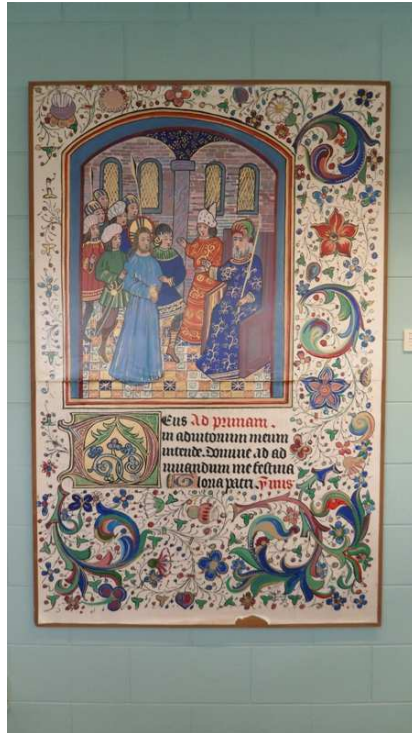 Deus Ad primam.
in adiutorium meum
intende. Domine Ad ad
iuuandum me festina
Gloria patri. ymis